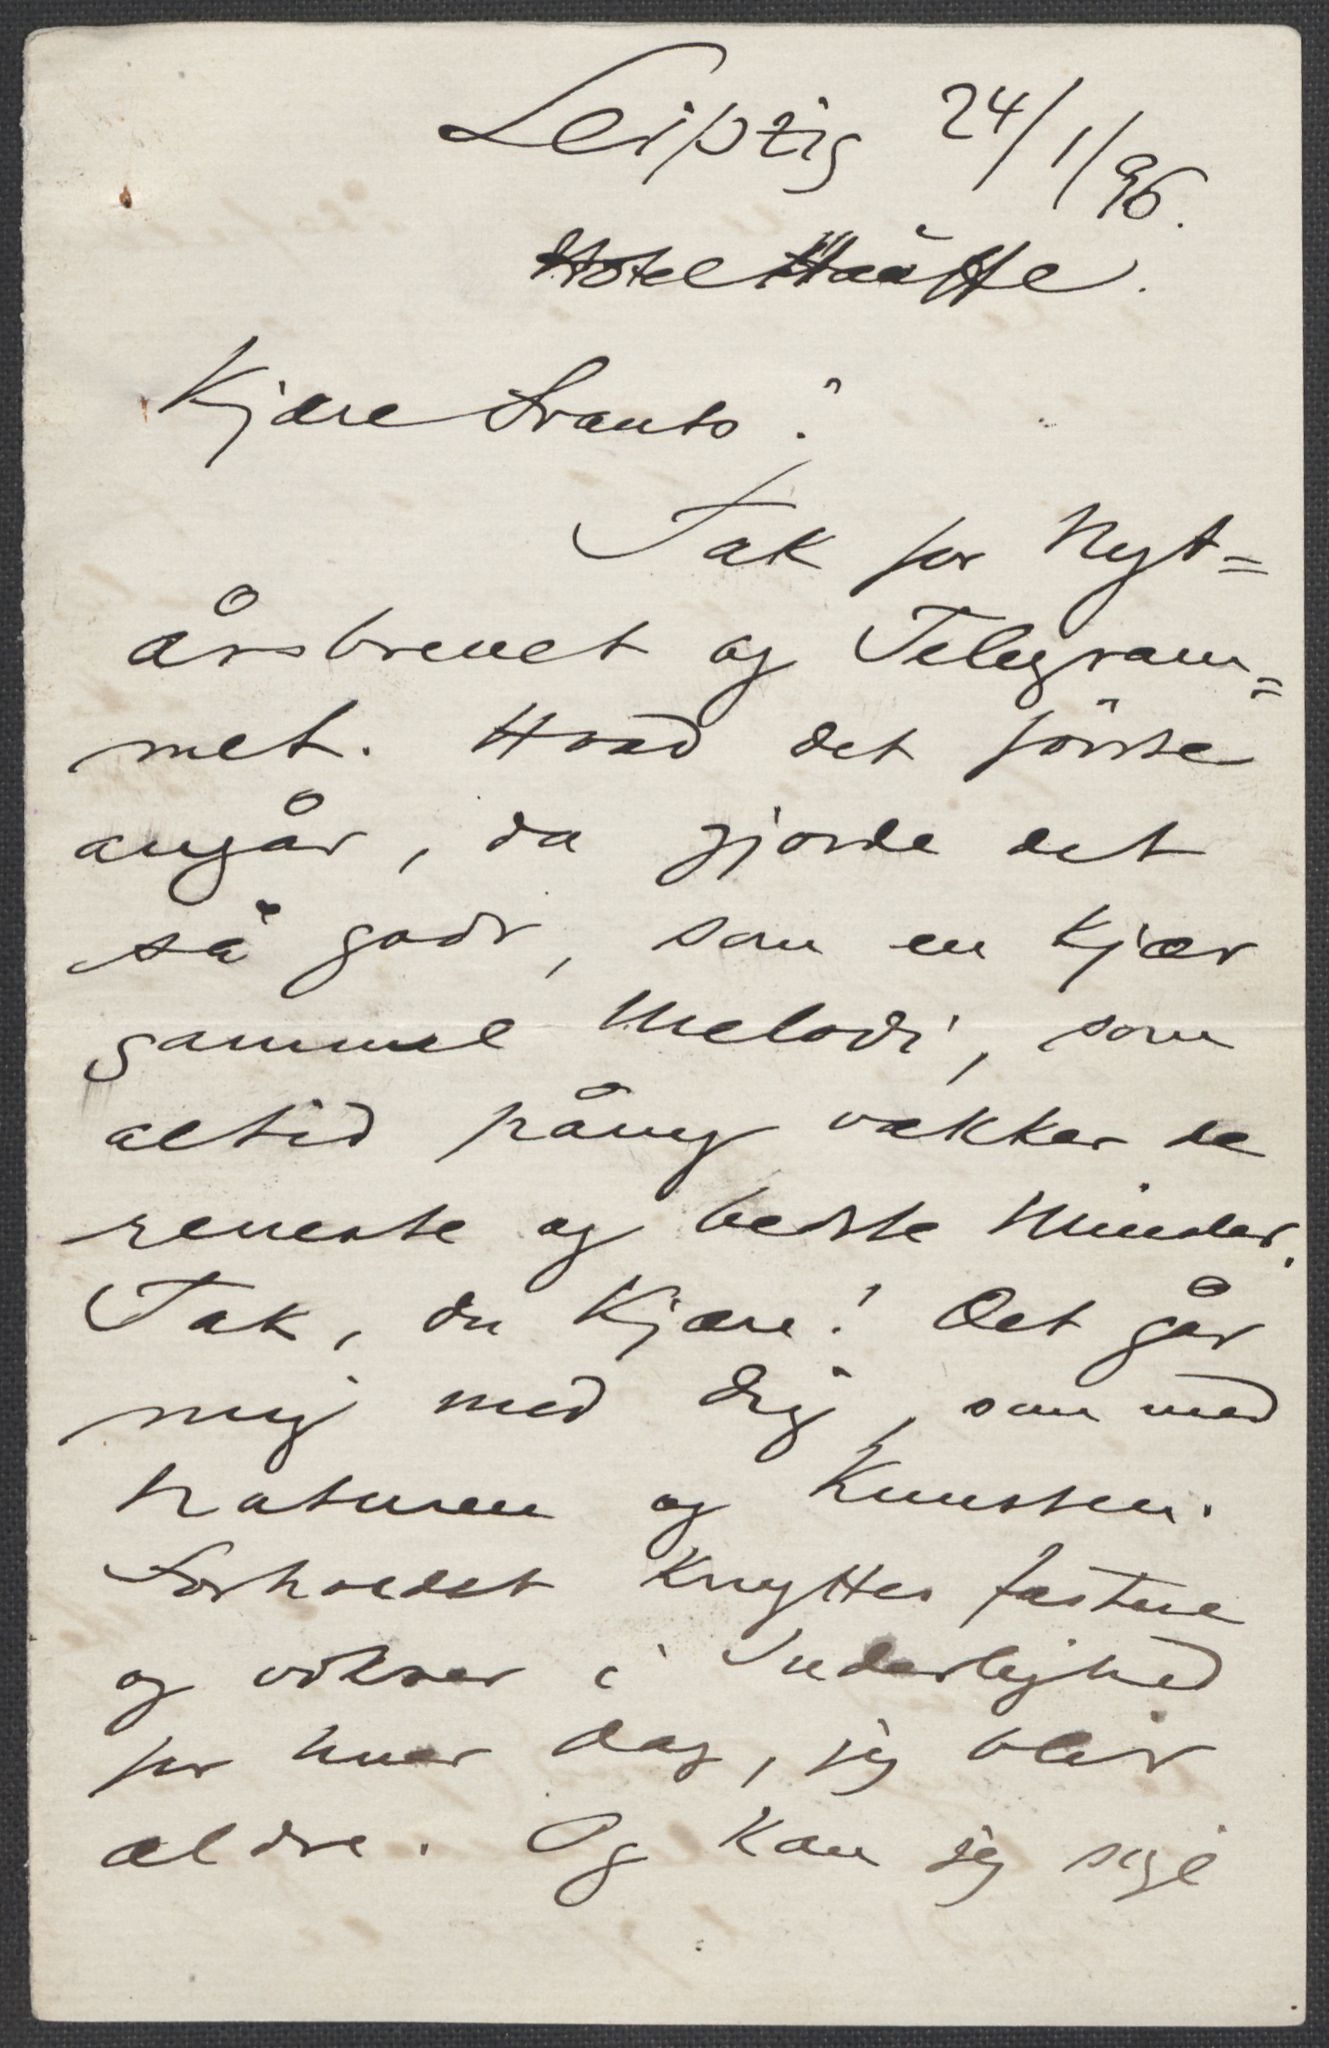 Leipzig 24/1/96.
Hotel Hauffe.
Kjære Frants!
Tak for Nyt=
årsbrevet og Telegram=
met. Hvad det første
angår, da gjorde det
så godt, som en kjær
gammel Melodi, som
altid påny vækker de
reneste og bedste Minder.
Tak, du Kjære! Det går
mig med dig, som med
Naturen og Kunsten.
Forholdet knyttes fastere
og vokser i Inderlighed
for hver Dag, jeg blir
ældre. Og kan jeg sige